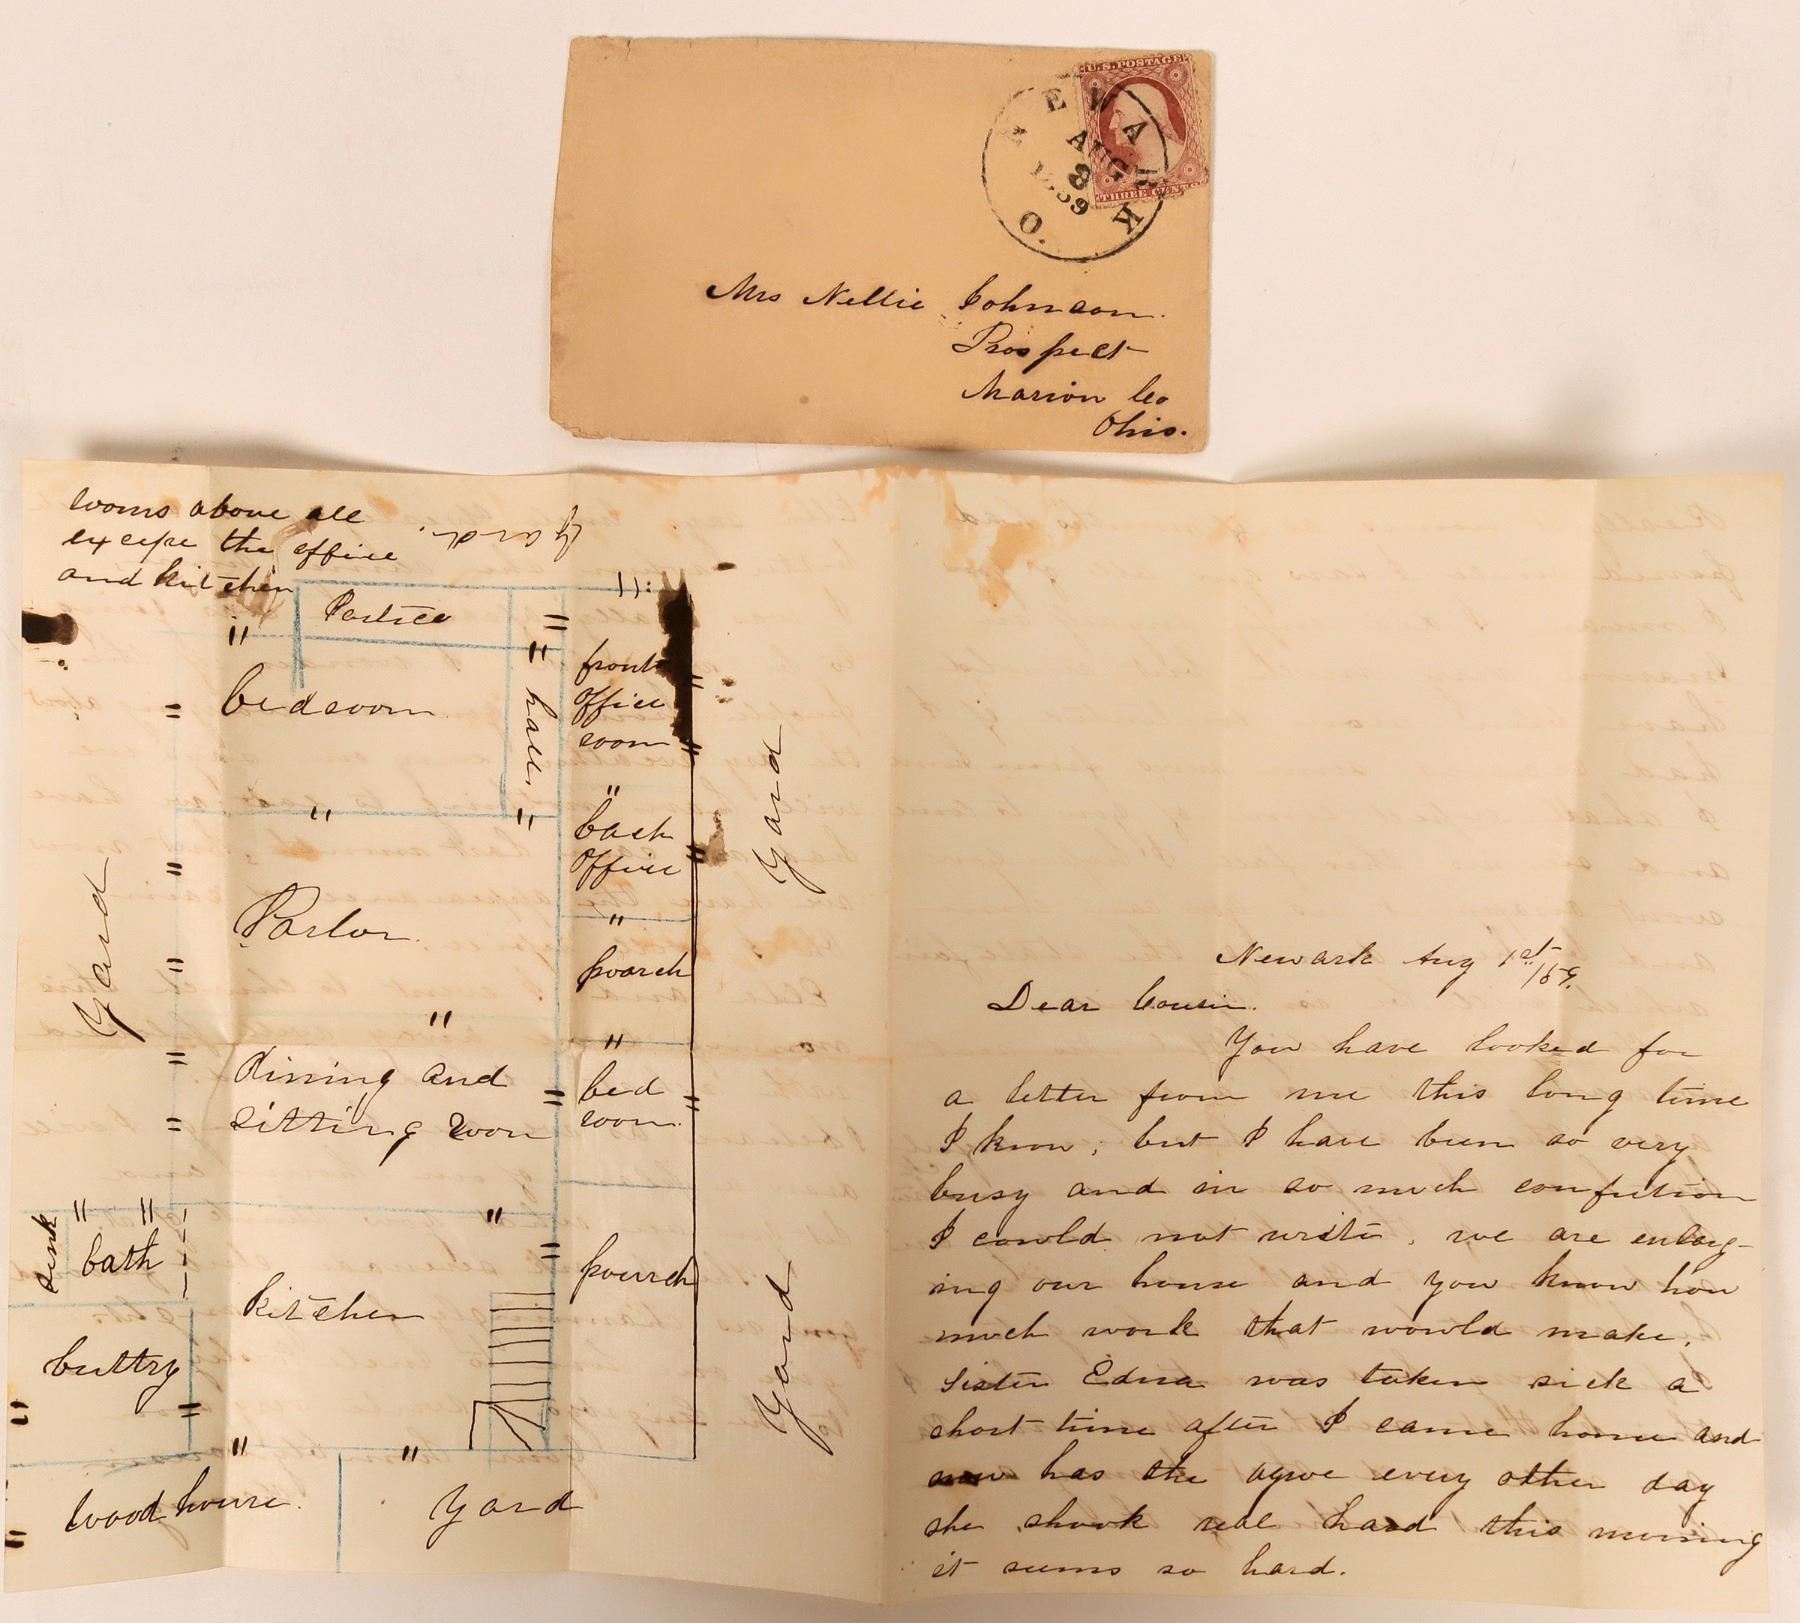 U.S. POSTAGE
THREE CENTS
NEWARK O.
AUG
8
1859
Mrs Nellie Johnson.
Prospect
Marion Co
Ohio.
rooms above all
except the office
and kitchen
yard.
Portico
hall.
front
office
room
bedroom
back
office
Yard
Yard
Parlor.
poarch
dinning and
sitting room
bed
room.
sink
bath
kitchen
pourch
Yard
buttry
wood house.
Yard
Newark Aug 1st /59.
Dear Cousin.
You have looked for
a letter from me this long time
I know, but I have been so very
busy and in so much confution
I cowld not write, we are enlarg-
ing our house and you know how
much work that wowld make.
Sister Edna was taken sick a
short time after I came home and
now has the ague every other day
she shook real hard this morning
it seems so hard.